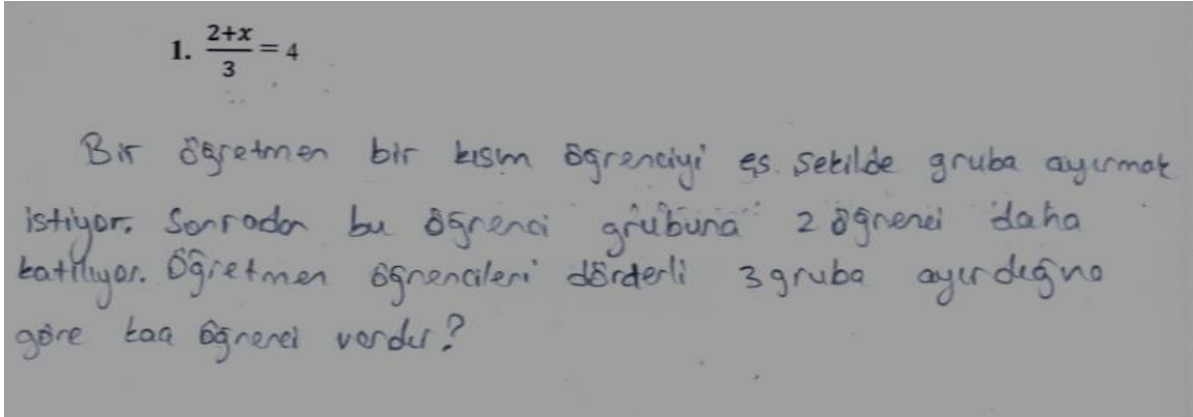 1. (2+x)/3 = 4
Bir öğretmen bir kısım öğrenciyi eş şekilde gruba ayırmak
istiyor. Sonradan bu öğrenci grubuna 2 öğrenci daha
katılıyor. Öğretmen öğrencileri dörderli 3 gruba ayırdığına
göre kaç öğrenci vardır?